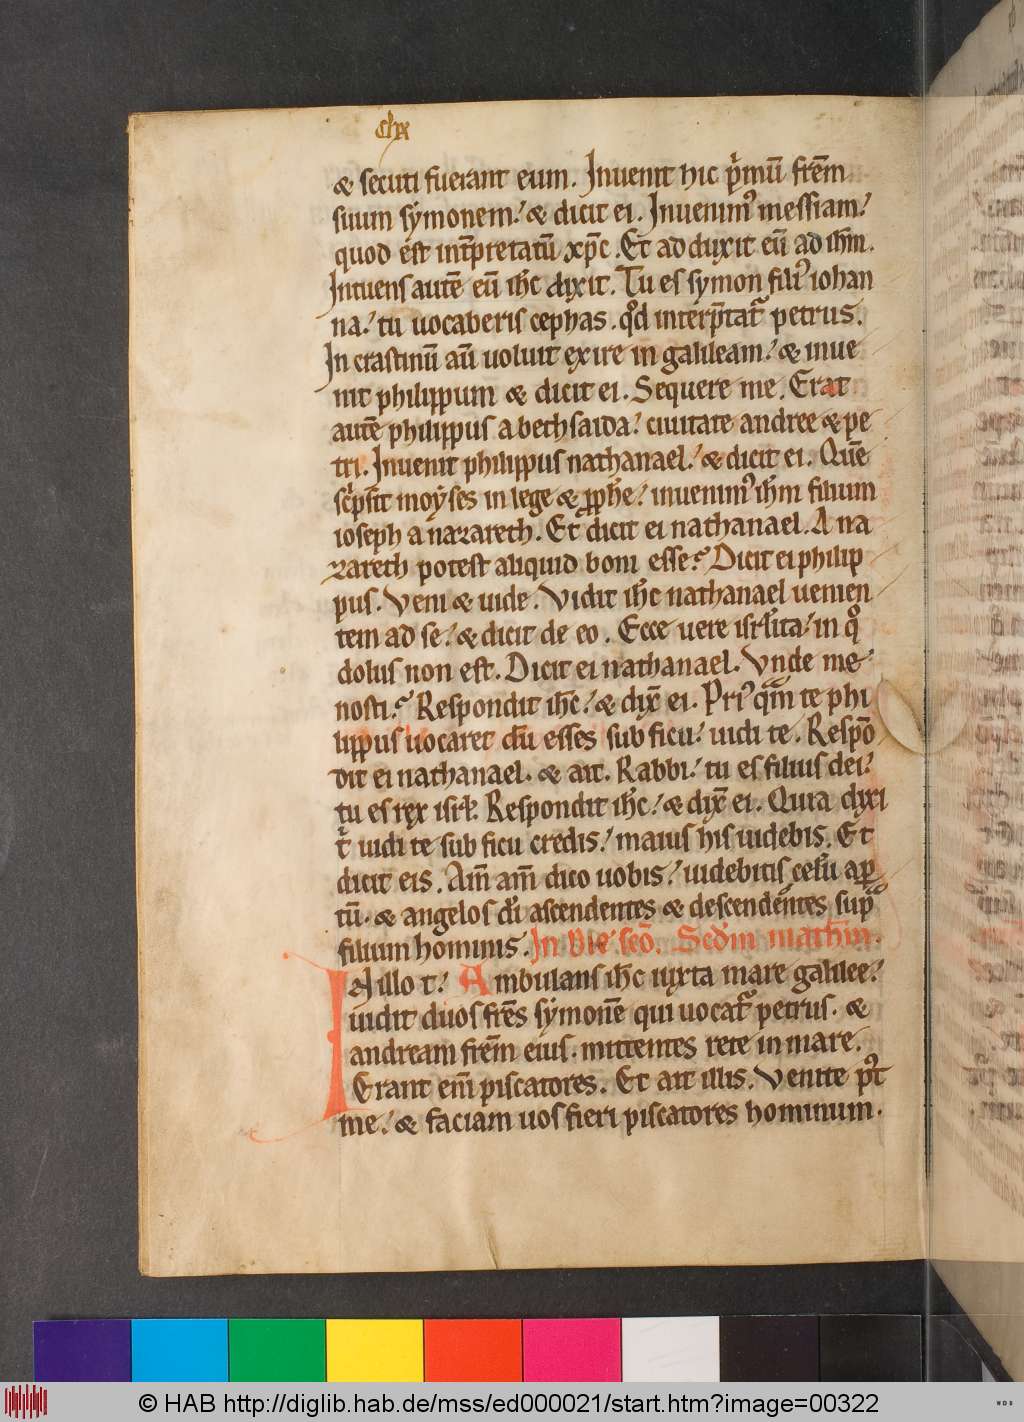 clix
& secuti fuerant eum. Inuenit hic p̓mū frēm
suum sẏmonem.' & dicit ei. Inuenimꝰ messiam.'
quod est int̄pretatū xp̄c. Et adduxit eū ad ih̄m.
Intuens autē eū ih̄c dixit. Tu es symon filiꝰ iohan
na.' tu uocaberis cephas. qd̓ interp̄tatᷣ petrus.
In crastinū aū uoluit exire in galileam.' & inue
nit philippum & dicit ei. Sequere me. Erat
autē philippus a bethsaida.' ciuitate andree & pe
tri. Inuenit philippus nathanael.' & dicit ei. Quē
sc̓psit moẏses in lege & ꝓph̄e.' inuenimꝰ ih̄m filium
ioseph a nazareth. Et dicit ei nathanael. A na
zareth potest aliquid boni esse.? Dicit ei philip
pus. Veni & uide. Vidit ih̄c nathanael uenien
tem ad se.' & dicit de eo. Ecce uere isrl̄ita.' in q̊
dolus non est. Dicit ei nathanael. Vnde me
nosti.? Respondit ih̄c.' & dix̄ ei. Priꝰ qᷓm te phi
lippus uocaret cū esses sub ficu.' uidi te. Respō
dit ei nathanael. & ait. Rabbi.' tu es filius dei.'
tu es rex isrł. Respondit ih̄c.' & dix̄ ei. Quia dixi
t̓ uidi te sub ficu credis.' maius his uidebis. Et
dicit eis. Am̄ am̄ dico uobis.' uidebitis celū ap̱
tū. & angelos di̓ ascendentes & descendentes supᷓ
filium hominis. In die sc̄o. Scd̄m math̄m.
In illo t̓.' Ambulans ih̄c iuxta mare galilee.'
uidit duos frēs sẏmonē qui uocatᷣ petrus. &
andream frēm eius. mittentes rete in mare.
Erant em̄ piscatores. Et ait illis. Venite pꝰt
me.' & faciam uos fieri piscatores hominum.
© HAB http://diglib.hab.de/mss/ed000021/start.htm?image=00322